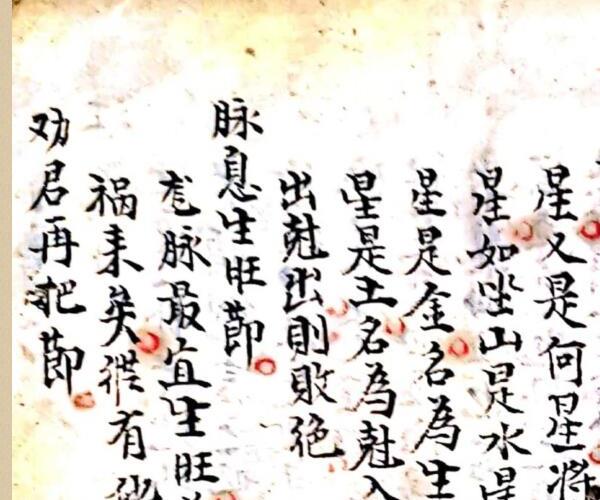 星又是何星將
星如坐山是水是
星是金名為生
星是土名為尅入
出尅出則敗絕
脉息生旺節
龙脉最宜生旺
禍来矣従有
劝君再把節